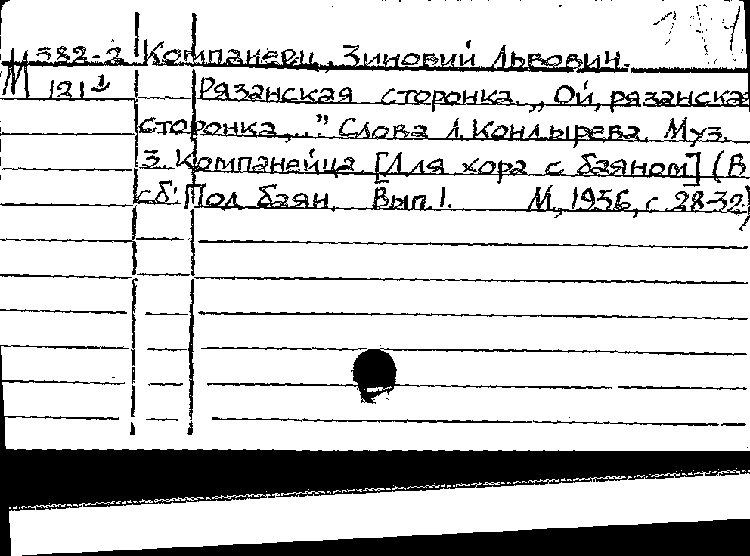 М 382-2 Компанеец, Зиновий Львович.
121 Рязанская сторонка. „Ой, рязанская
сторонка,..." Слова Л. Кондырева. Муз.
З. Компанейца. [Для хора с баяном] (В
сб: Под баян. Вып. 1. М., 1956, с 28-32)